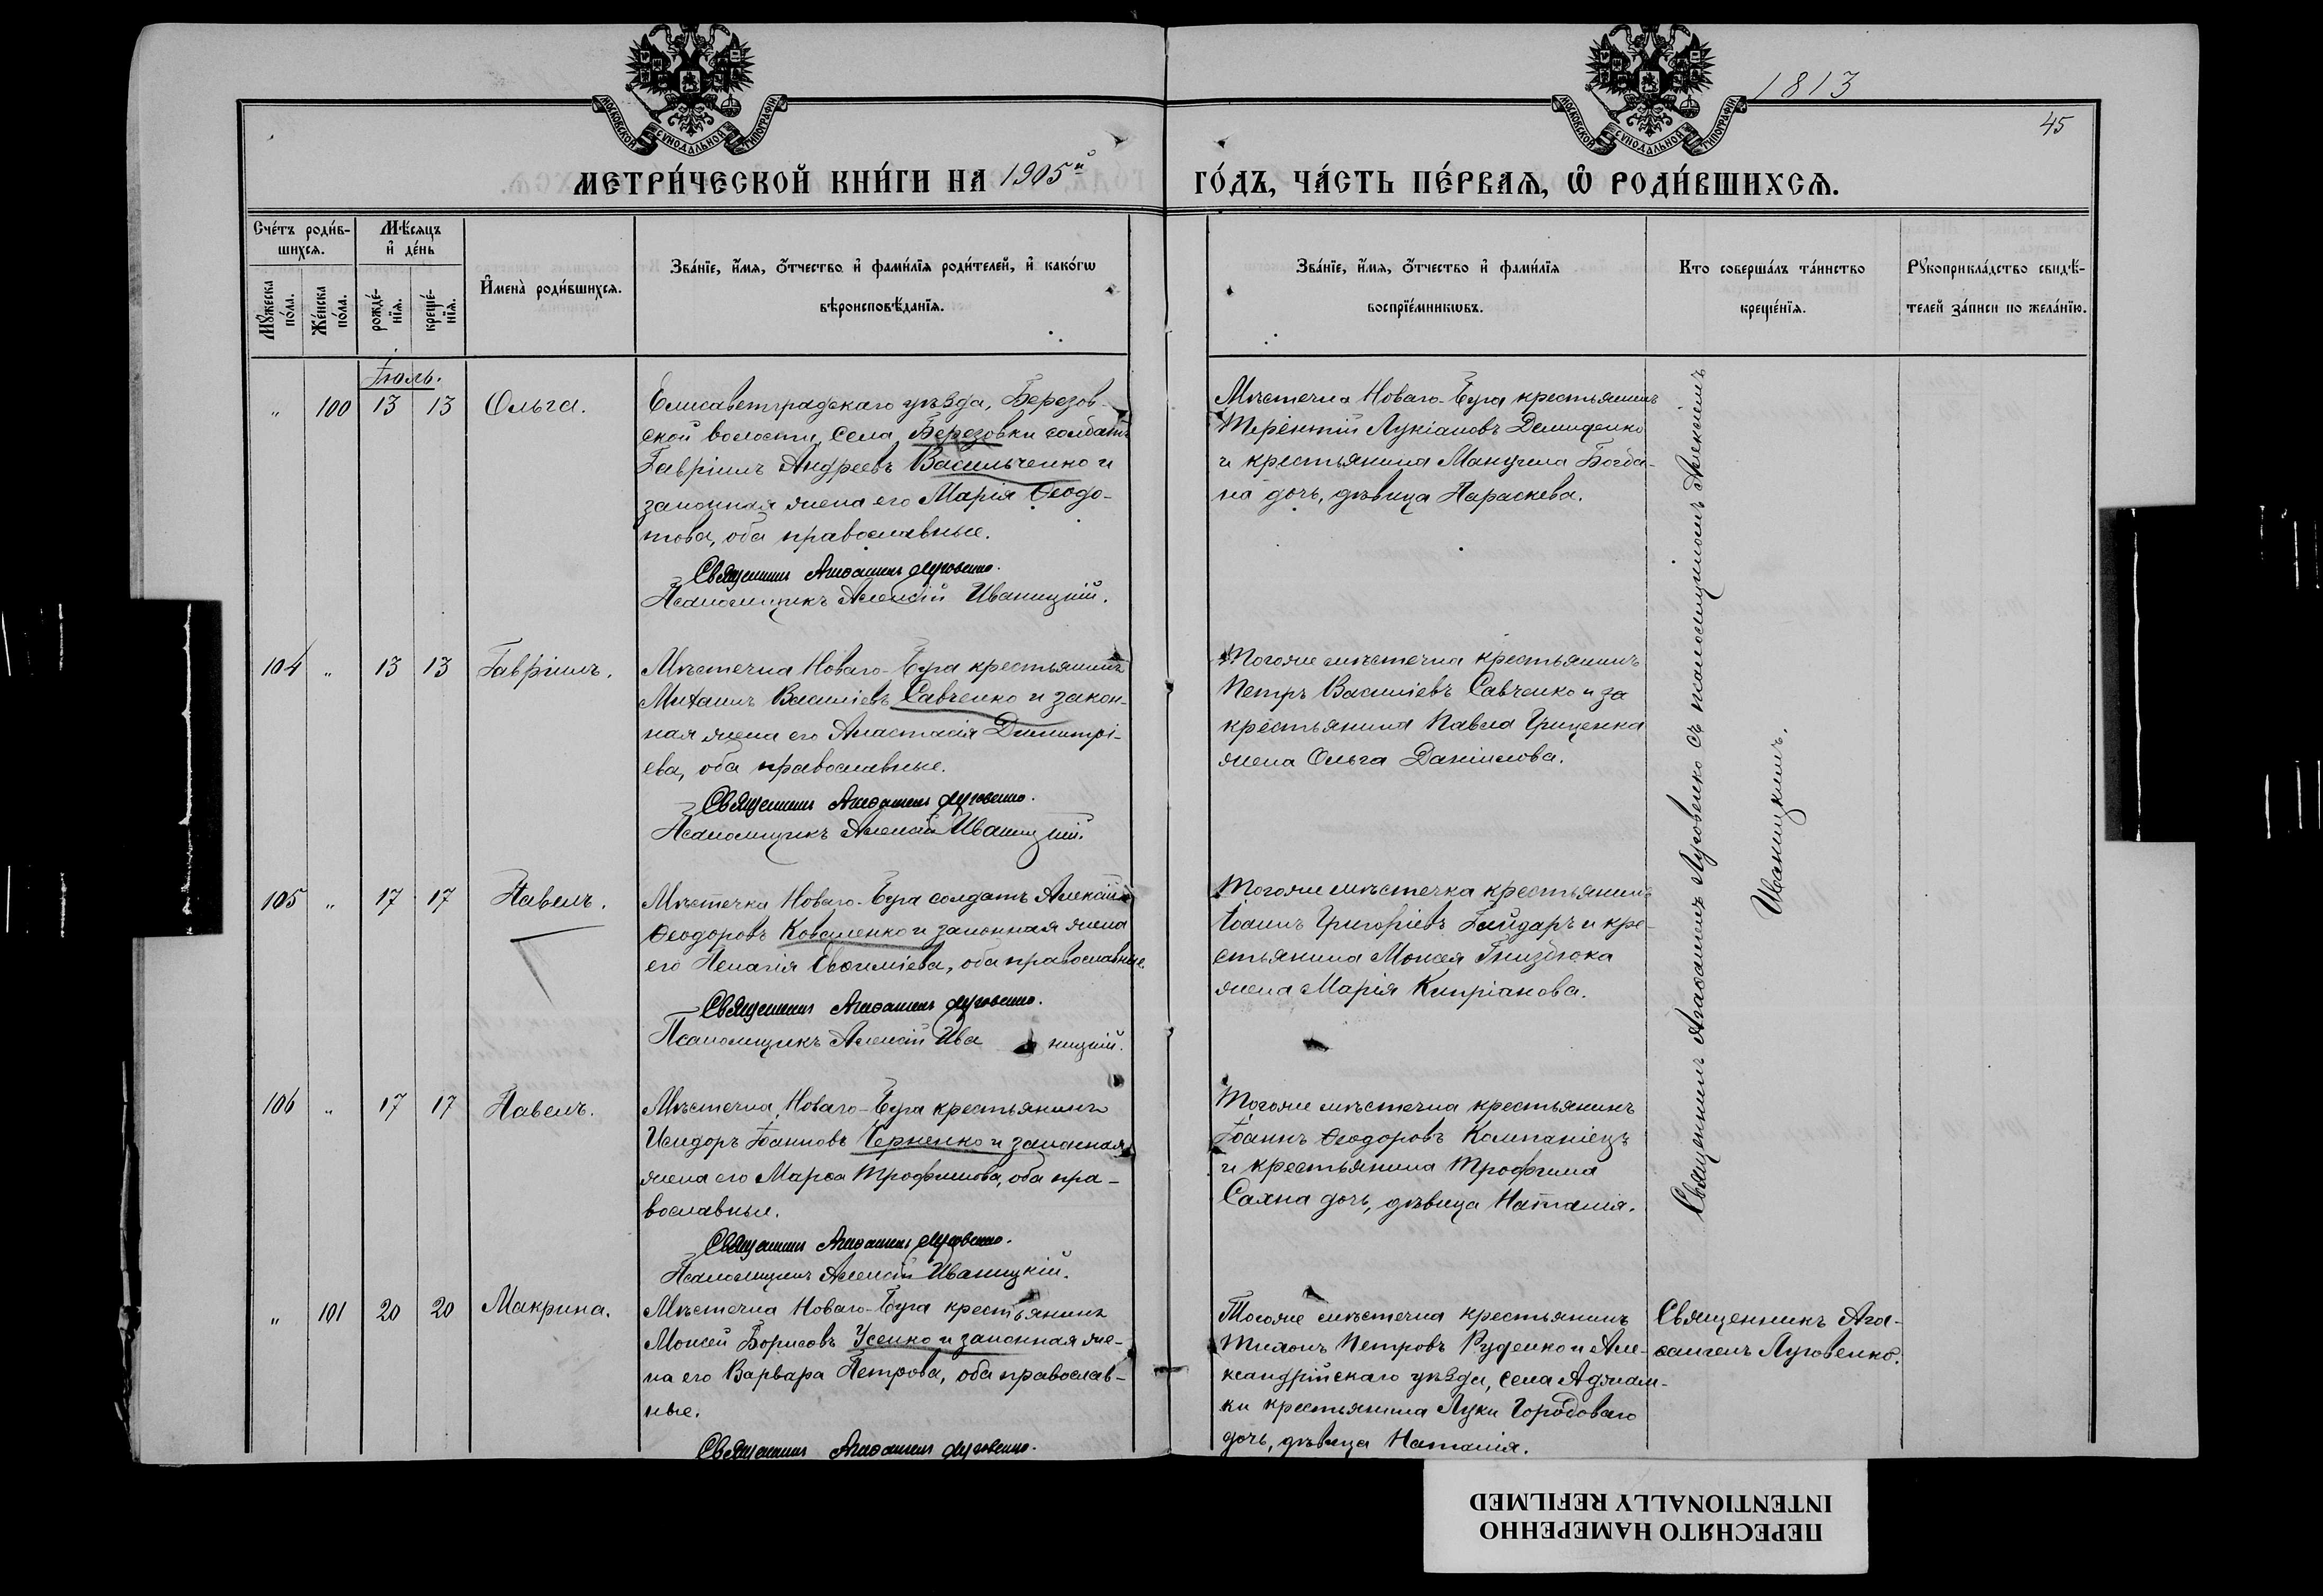 1813
45
МОСКОВСКОЙ СѴНОДАЛЬНОЙ ТИПОГРАФІИ
МОСКОВСКОЙ СѴНОДАЛЬНОЙ ТИПОГРАФІИ
МЕТРИ́ЧЕСКОЙ КНИ́ГИ НА 1905й ГО́ДЪ, ЧА́СТЬ ПЕ́РВАѦ, Ѡ҆ РОДИ́ВШИХСѦ.
Сче́тъ роди́в-
шихсѧ.
Мꙋжеска по́ла.
Же́нска по́ла.
Мѣ́сяцъ
и҆ де́нь
рожде́-
нїѧ.
креще́-
нїѧ.
И҆мена̀ роди́вшихсѧ.
Зва́нїе, и҆́мѧ, ѻ҆́тчество и҆ фами́лїѧ роди́телей, и҆ како́гѡ
вѣроисповѣ́данїѧ.
Зва́нїе, и҆́мѧ, ѻ҆́тчество и҆ фами́лїѧ
воспрїе́мникѡвъ.
Кто соверша́лъ та́инство
креще́нїѧ.
Рꙋкоприкла́дство свидѣ́-
телей за́писи по жела́нїю.
Іюль.
" 100 13 13 Ольга.
Елисаветградскаго уѣзда, Березов-
ской волости, села Березовки солдатъ
Гавріилъ Андреевъ Васильченко и
законная жена его Марія Ѳеодо-
това, оба православные.
Священникъ Агаѳангелъ Луговенко.
Псаломщикъ Алексій Иваницкій.
Мѣстечка Новаго-Буга крестьянинъ
Терентій Лукіановъ Демиденко
и крестьянина Мануила Богда-
на дочь, дѣвица Параскева.
104 " 13 13 Гавріилъ.
Мѣстечка Новаго-Буга крестьянинъ
Михаилъ Василіевъ Савченко и закон-
ная жена его Анастасія Димитрі-
ева, оба православные.
Священникъ Агаѳангелъ Луговенко.
Псаломщикъ Алексій Иваницкій.
Тогоже мѣстечка крестьянинъ
Петръ Василіевъ Савченко и за
крестьянина Павла Гриценка
жена Ольга Даніилова.
105 " 17 17 Павелъ.
Мѣстечка Новаго-Буга солдатъ Алексій
Ѳеодоровъ Коваленко и законная жена
его Пелагія Евѳиміева, оба православные.
Священникъ Агаѳангелъ Луговенко.
Псаломщикъ Алексій Ива ницкій.
Тогоже мѣстечка крестьянинъ
Іоаннъ Григоріевъ Гайдаръ и кре-
стьянина Моисея Гниздюка
жена Марія Кипріанова.
106 " 17 17 Павелъ.
Мѣстечка Новаго-Буга крестьянинъ
Исидоръ Іоанновъ Черненко и законная
жена его Марѳа Трофимова, оба пра-
вославные.
Священникъ Агаѳангелъ Луговенко.
Псаломщикъ Алексій Иваницкій.
Тогоже мѣстечка крестьянинъ
Іоаннъ Ѳеодоровъ Компаніецъ
и крестьянина Трофима
Сахна дочь, дѣвица Наталія.
Священникъ Агаѳангелъ Луговенко съ псаломщикомъ Алексіемъ
Иваницкимъ.
" 101 20 20 Макрина.
Мѣстечка Новаго-Буга крестьянинъ
Моисей Борисовъ Усенко и законная же-
на его Варвара Петрова, оба православ-
ные.
Священникъ Агаѳангелъ Луговенко.
Тогоже мѣстечка крестьянинъ
Тихонъ Петровъ Руденко и Але-
ксандрійскаго уѣзда, села Аджам-
ки крестьянина Луки Городоваго
дочь, дѣвица Наталія.
Священникъ Ага-
ѳангелъ Луговенко.
ПЕРЕСНЯТО НАМЕРЕННО
INTENTIONALLY REFILMED